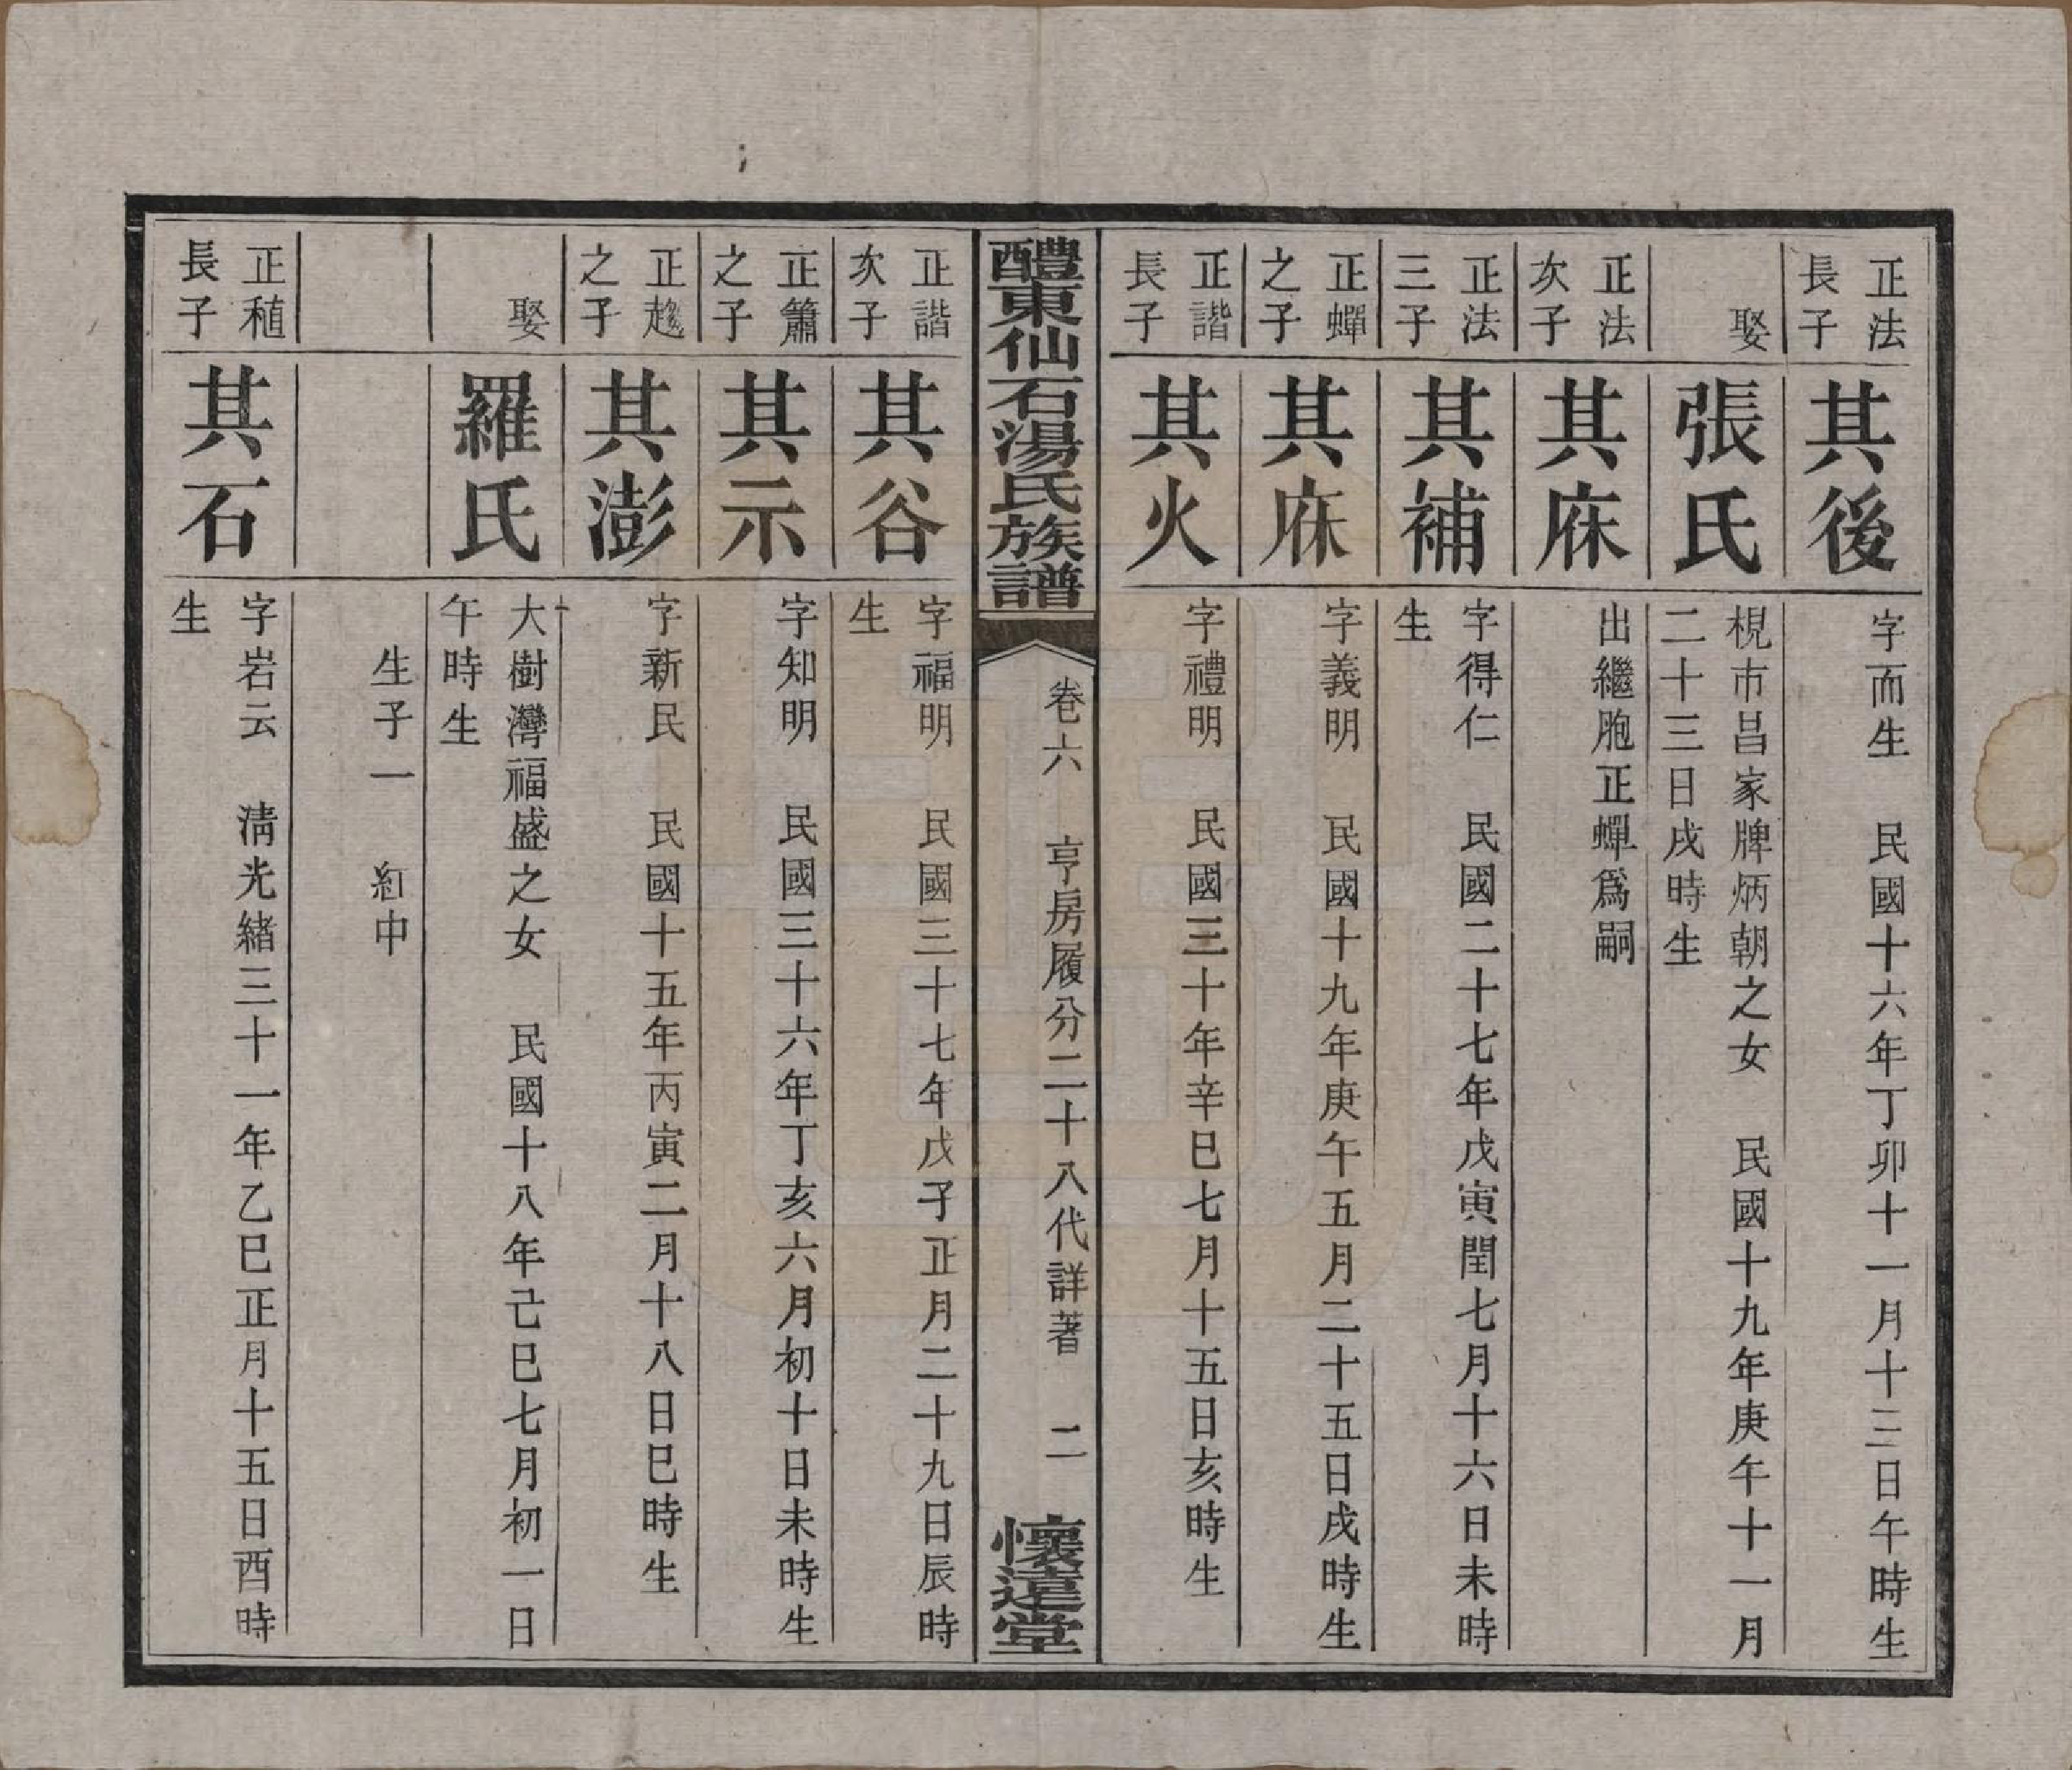 正法
長子
其後
字而生　民國十六年丁卯十一月十三日午時生
娶
張氏
梘市昌家牌炳朝之女　民國十九年庚午十一月
二十三日戌時生
正法
次子
其庥
出繼胞正蟬爲嗣
正法
三子
其補
字得仁　民國二十七年戊寅閏七月十六日未時
生
正蟬
之子
其庥
字義明　民國十九年庚午五月二十五日戌時生
正諧
長子
其火
字禮明　民國三十年辛巳七月十五日亥時生
醴東仙石湯氏族譜
卷六　亨房履分二十八代詳著　二
懷遠堂
正諧
次子
其谷
字福明　民國三十七年戊子正月二十九日辰時
生
正簫
之子
其示
字知明　民國三十六年丁亥六月初十日未時生
正趨
之子
其澎
字新民　民國十五年丙寅二月十八日巳時生
娶
羅氏
大樹灣福盛之女　民國十八年己巳七月初一日
午時生
生子一　紅中
正稙
長子
其石
字岩云　淸光緒三十一年乙巳正月十五日酉時
生